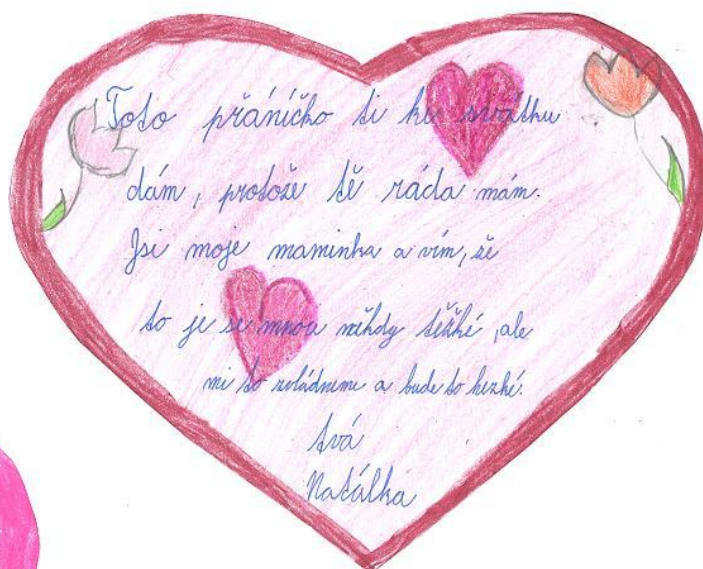 Toto přáníčko ti ke svátku
dám, protože tě ráda mám.
Jsi moje maminka a vím, že
to je se mnou někdy těžké, ale
mi to zvládneme a bude to hezké.
tvá
Natálka